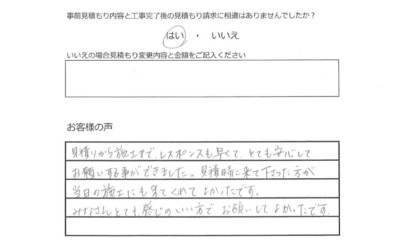 事前見積もり内容と工事完了後の見積もり請求に相違はありませんでしたか？
はい ・ いいえ
いいえの場合見積もり変更内容と金額をご記入ください
お客様の声
見積りから施工まで、レスポンスも早くて、とても安心して
お願いする事ができました。見積時に来て下さった方が
当日の施工にも来てくれてよかったです。
みなさんとても感じのいい方でお願いしてよかったです。